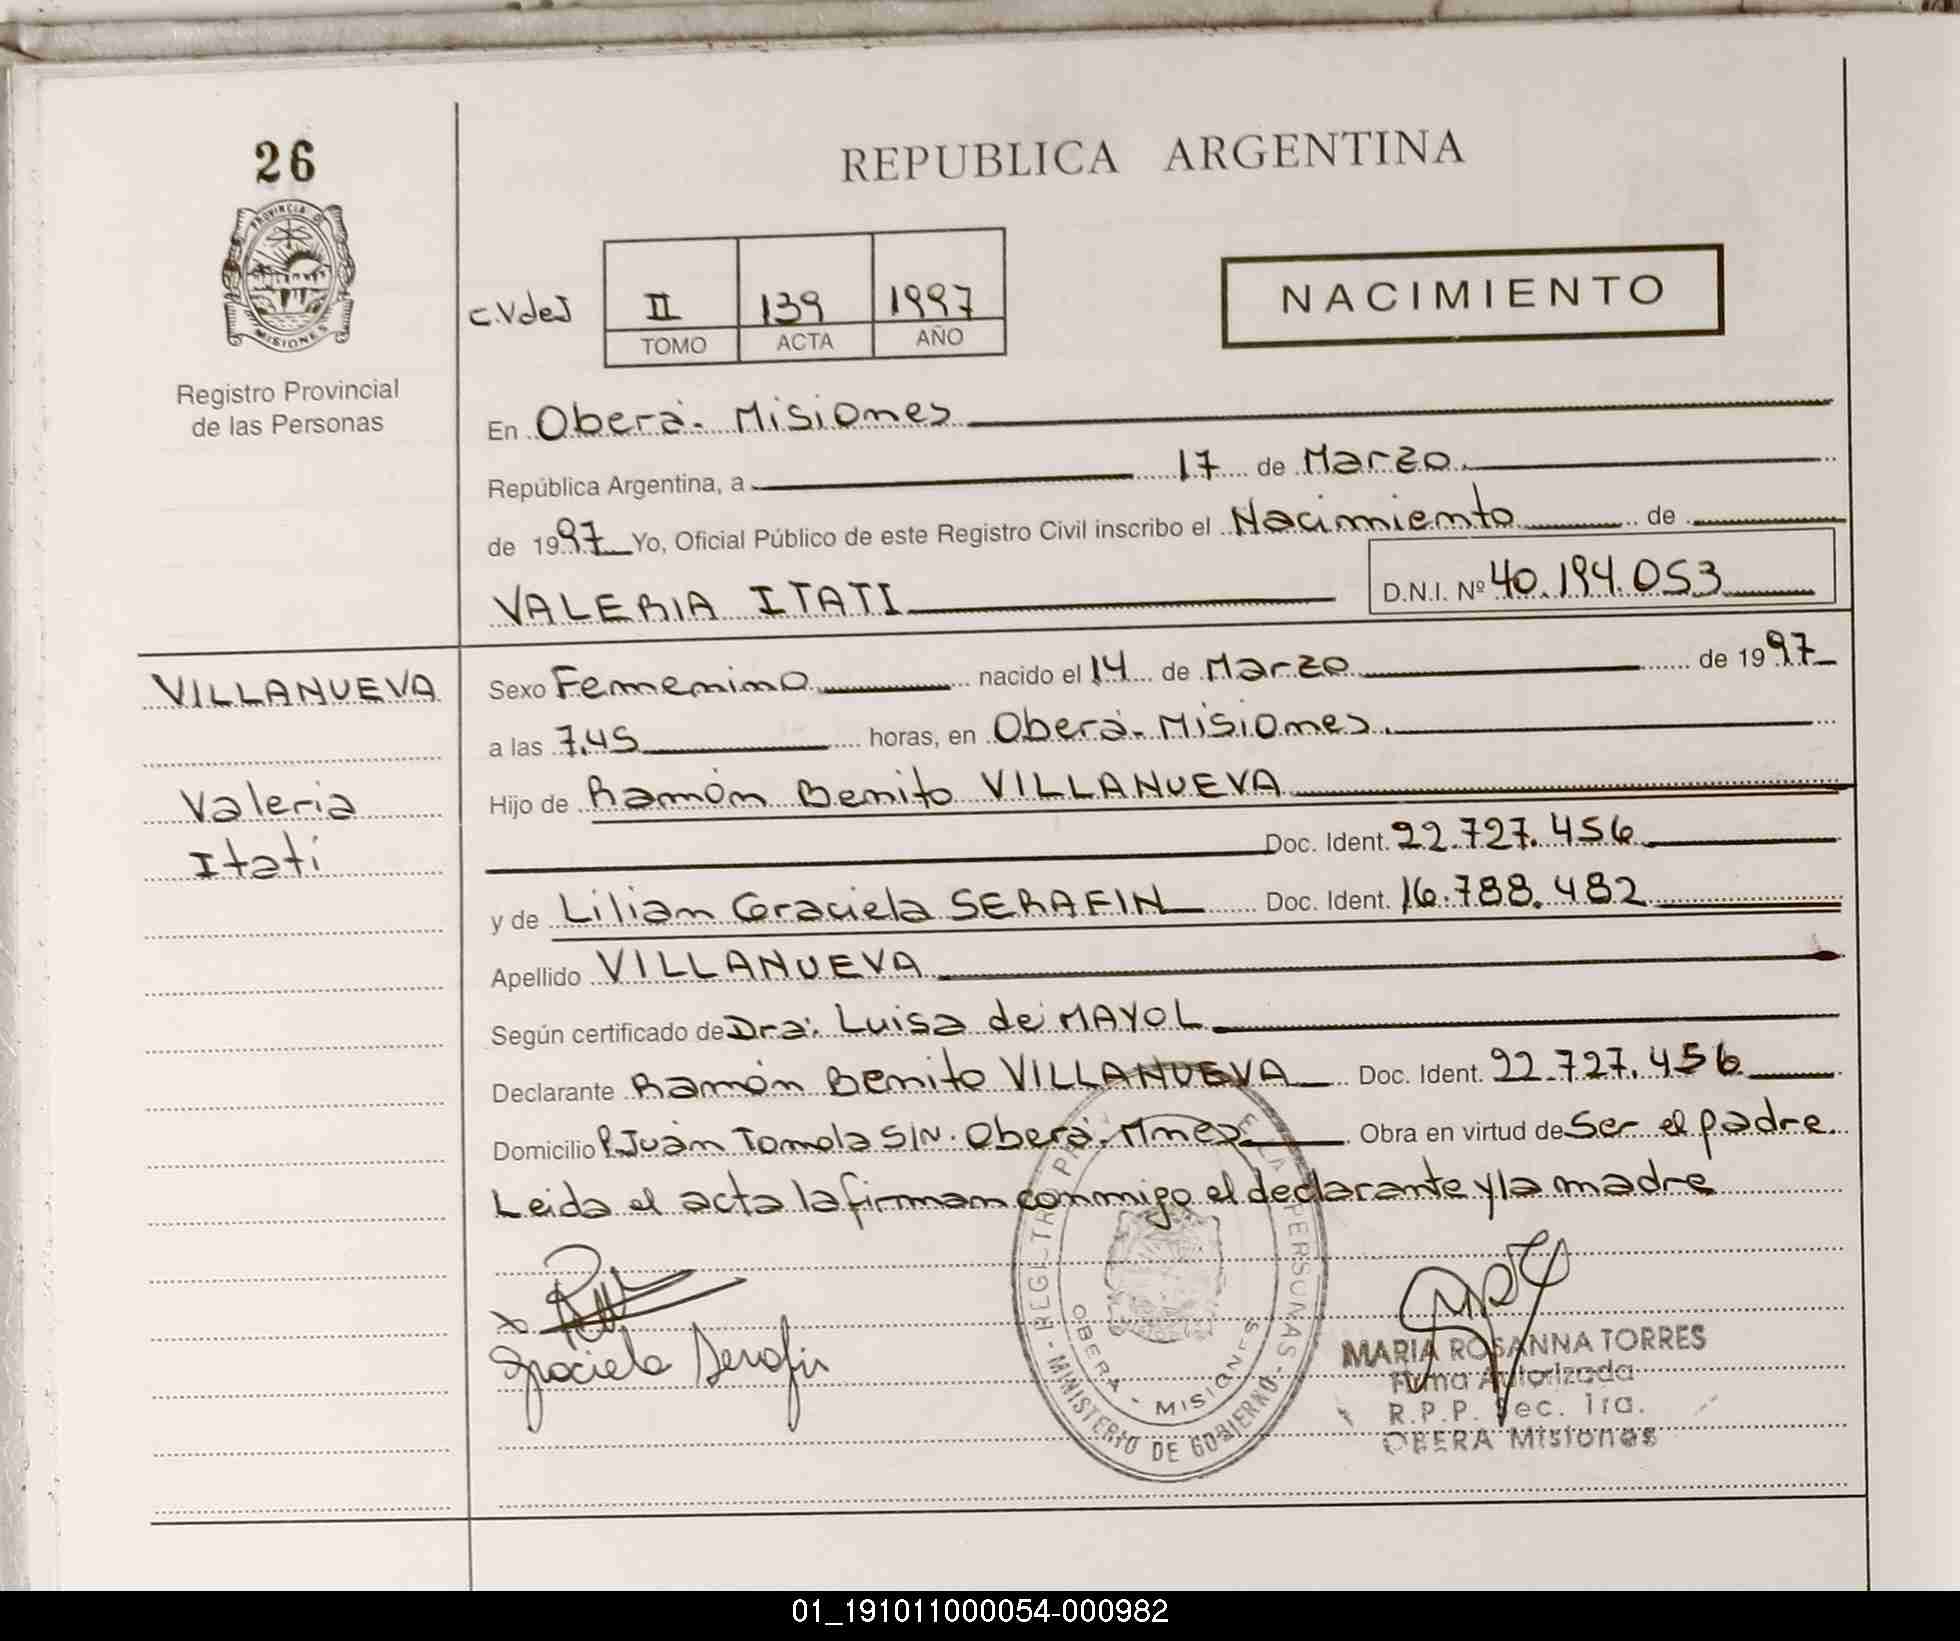 26
PROVINCIA D
MISIONES
Registro Provincial
de las Personas
REPUBLICA ARGENTINA
c.VdeJ
II 139 1997
TOMO ACTA AÑO
NACIMIENTO
En Oberá - Misiones
República Argentina, a 17 de Marzo
de 1997 Yo, Oficial Público de este Registro Civil inscribo el Nacimiento de
VALERIA ITATI D.N.I. Nº 40.194.053
VILLANUEVA
Valeria
Itatí
Sexo Femenino nacido el 14 de Marzo de 1997
a las 7,45 horas, en Oberá - Misiones
Hijo de Ramón Benito VILLANUEVA
Doc. Ident. 22.727.456
y de Lilian Graciela SERAFIN Doc. Ident. 16.788.482
Apellido VILLANUEVA
Según certificado de Dra: Luisa de MAYOL
Declarante Ramón Benito VILLANUEVA Doc. Ident. 22.727.456
Domicilio P. Juan Tomola S/N. Oberá - Mnes Obra en virtud de Ser el padre
Leida el acta la firman conmigo el declarante y la madre
Graciela Serafin
- MINISTERIO DE GOBIERNO -
OBERA - MISIONES
MARIA ROSANNA TORRES
Firma Autorizada
R.P.P. Sec. 1ra.
OBERA Misiones
01_191011000054-000982